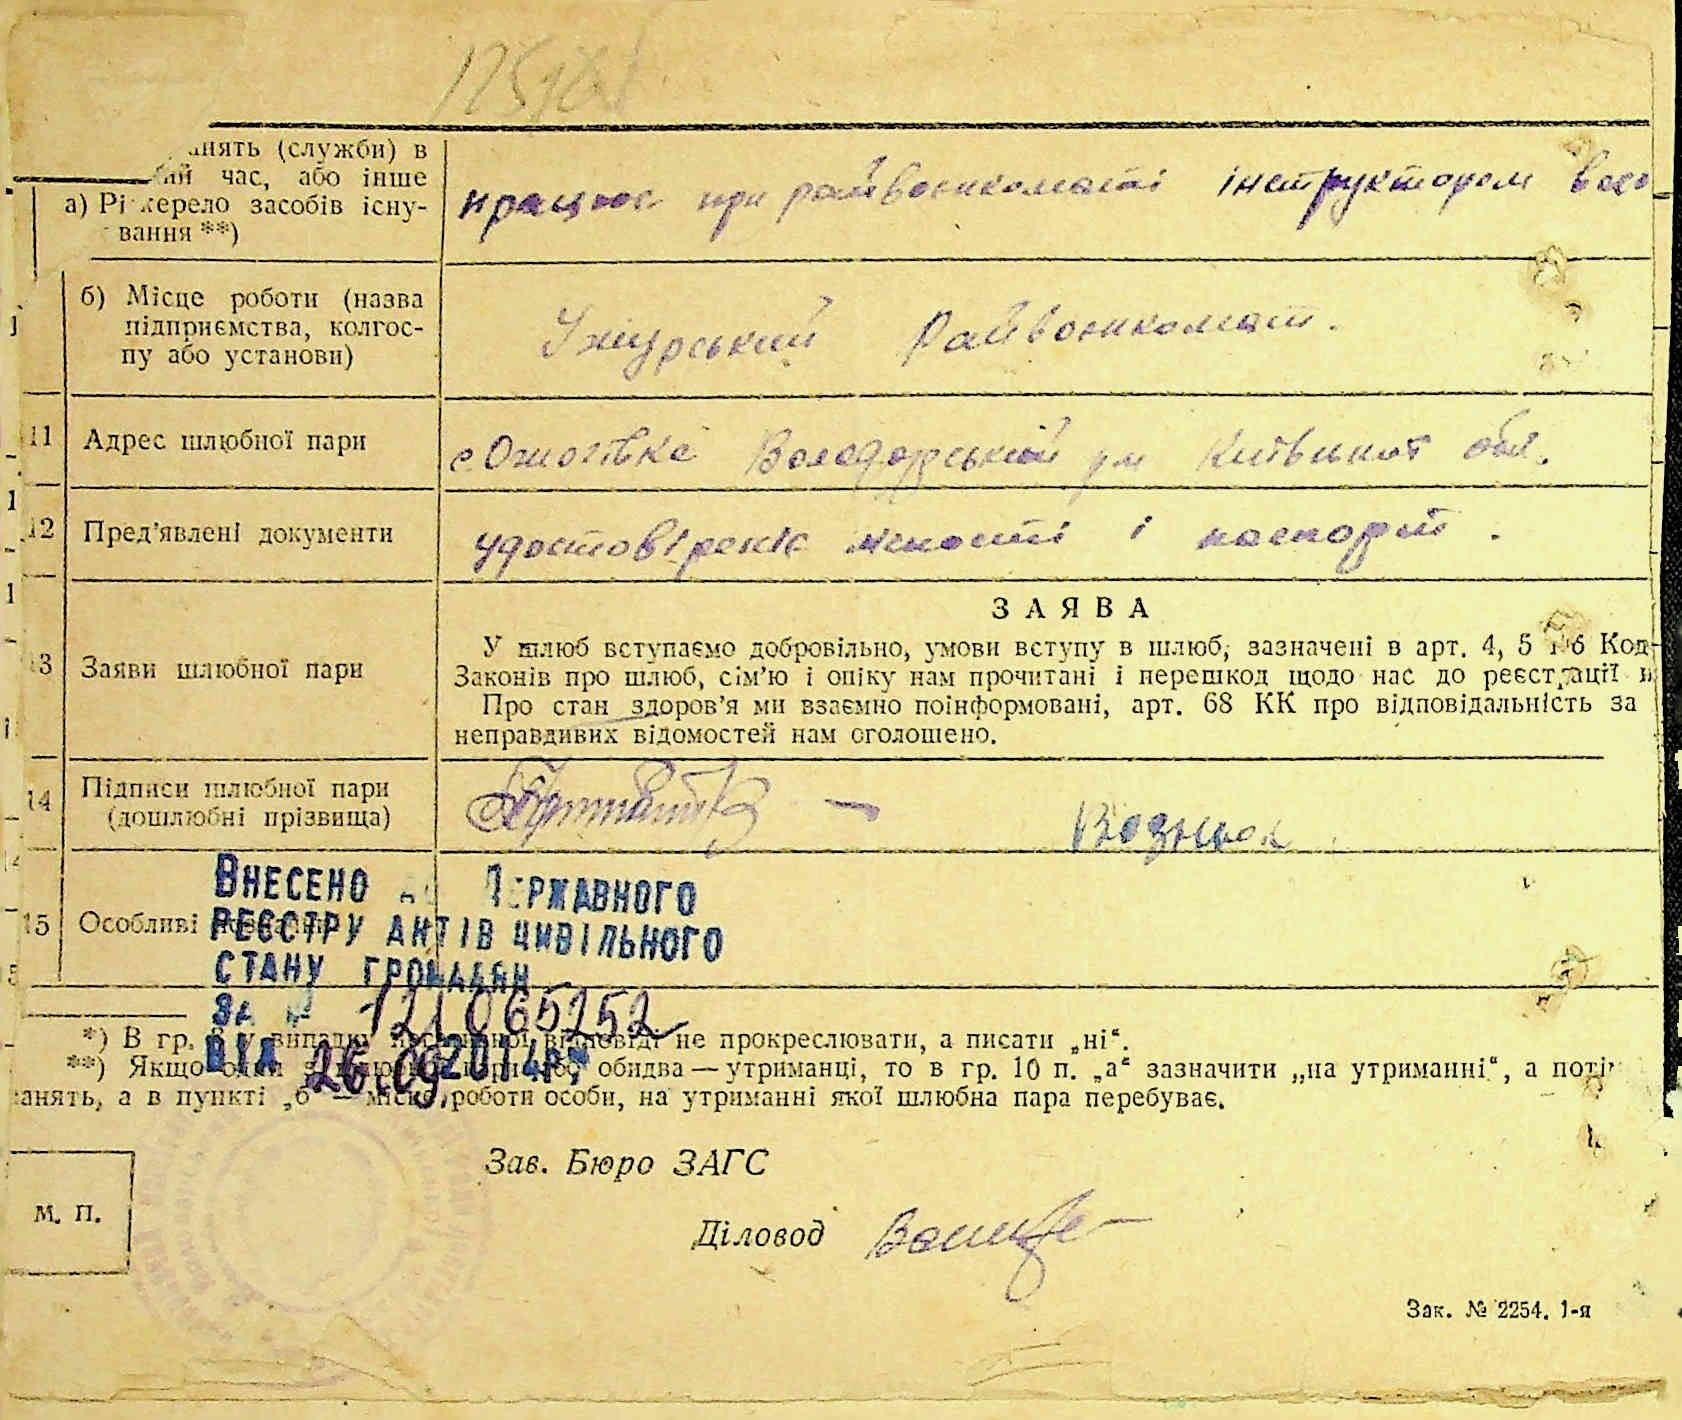 занять (службы) в
час, або інше
а) Рі джерело засобів існу-
вання **)
працює при райвоєнкоматі інструктором
б) Місце роботи (назва
підприємства, колгос-
пу або установи)
Райвоєнкомат.
11 Адрес шлюбної пари
Володарський р-н Київської обл.
12 Пред'явлені документи
удостовірення личності і паспорт.
13 Заяви шлюбної пари
ЗАЯВА
У шлюб вступаємо добровільно, умови вступу в шлюб, зазначені в арт. 4, 5 і 6 Код-
Законів про шлюб, сім'ю і опіку нам прочитані і перешкод щодо нас до реєстрації н
Про стан здоров'я ми взаємно поінформовані, арт. 68 КК про відповідальність за
неправдивих відомостей нам оголошено.
14 Підписи шлюбної пари
(дошлюбні прізвища)
Возняк
15 Особливі
ВНЕСЕНО ДО ДЕРЖАВНОГО
РЕЄСТРУ АКТІВ ЦИВІЛЬНОГО
СТАНУ ГРОМАДЯН
ЗА № 121065252
ВІД 26.09 2014р.
*) В гр. 8 у випадку негативної відповіді не прокреслювати, а писати „ні“.
**) Якщо обидва — утриманці, то в гр. 10 п. „а“ зазначити „на утриманні“, а потім
занять, а в пункті „б“ — місце роботи особи, на утриманні якої шлюбна пара перебуває.
Зав. Бюро ЗАГС
М. П.
Діловод
Зак. № 2254. 1-я